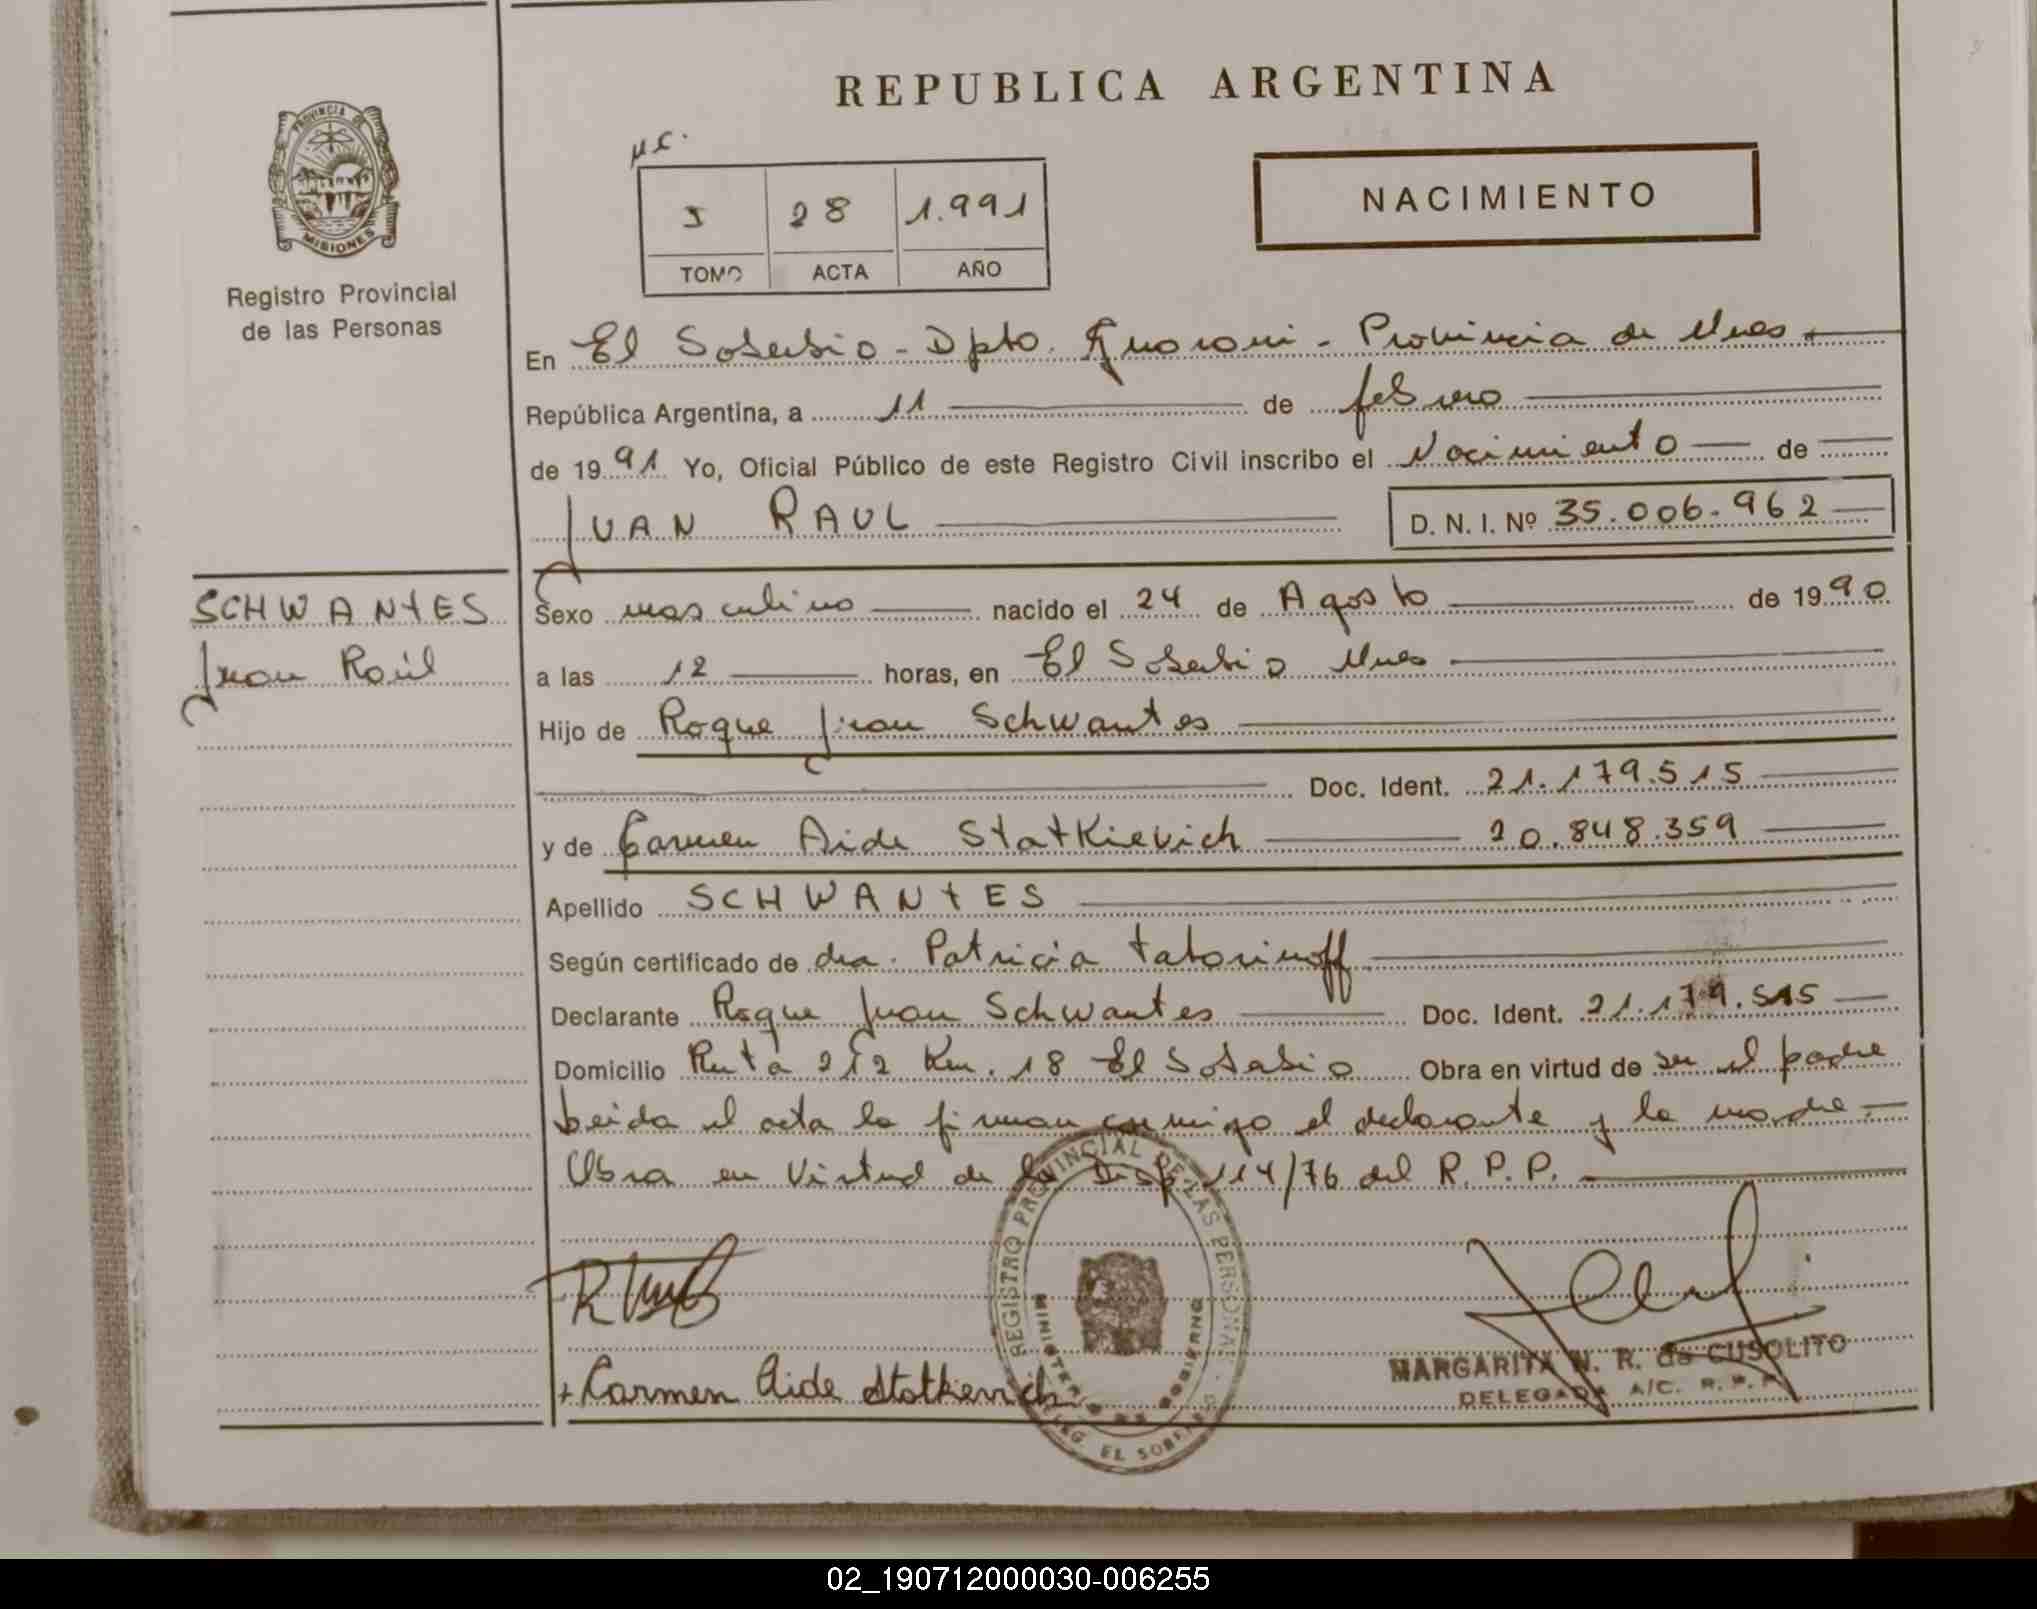 REPUBLICA ARGENTINA
PROVINCIA DE
MISIONES
Registro Provincial
de las Personas
NACIMIENTO
28 1.991
TOMO ACTA AÑO
En El Soberbio - Dpto. Guarani - Provincia de Mnes
República Argentina, a 11 de febrero
de 1991 Yo, Oficial Público de este Registro Civil inscribo el Nacimiento de
JUAN RAUL D. N. I. Nº 35.006.962
SCHWANTES
Juan Raúl
Sexo masculino nacido el 24 de Agosto de 1990
a las 12 horas, en El Soberbio Mnes
Hijo de Roque Juan Schwantes
Doc. Ident. 21.179.515
y de Carmen Aide Statkievich 20.848.359
Apellido SCHWANTES
Según certificado de dra. Patricia
Declarante Roque Juan Schwantes Doc. Ident. 21.179.515
Domicilio Ruta 212 Km. 18 El Soberbio Obra en virtud de ser el padre
Leida el acta la firman conmigo el declarante y la madre
Obra en Virtud de la Disp 114/76 del R.P.P.
REGISTRO PROVINCIAL DE LAS PERSONAS
MINISTERIO DE GOBIERNO
EL SOBERBIO
+ Carmen Aide Statkievich
MARGARITA N. R. de CUSOLITO
DELEGADA A/C. R. P. P.
02_190712000030-006255